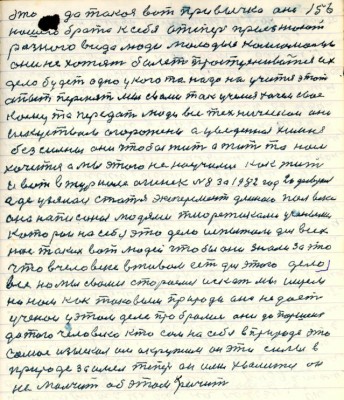 это да такая вот привычка она 156
нашего брата к себе а теперь приезжают
разного вида люди молодыя комсомольцы
они не хотят болеть простуживатся их
дело будет одно у кого то надо научится этот
опыт перенять мы с вами так учения хочем свое
кому то передать люди все технически они
искуственно вооружены а в учении химия
бессильны они чтобы жить а жить то нам
хочится а мы этого не научили как жить
И вот в журнале огонек №8 за 1982 год 20 февраля
а где указано статя эксперимент длиною пол века
она написана людями теоретиками учеными
которая на себе это дело испытали для всех
нас таких вот людей чтобы они знали за это
что в человеке в живом есть для этого дело
все но мы с вами стараемся искать мы ищем
но нам как таковым природа она не дает
ученым у этом деле пробралися они до паршека
до того человека кто сам на себе в природе это
самое изыскал им окружним он эти силы в
природе занялся теперь он ими хвалится он
не молчит об этом кричит